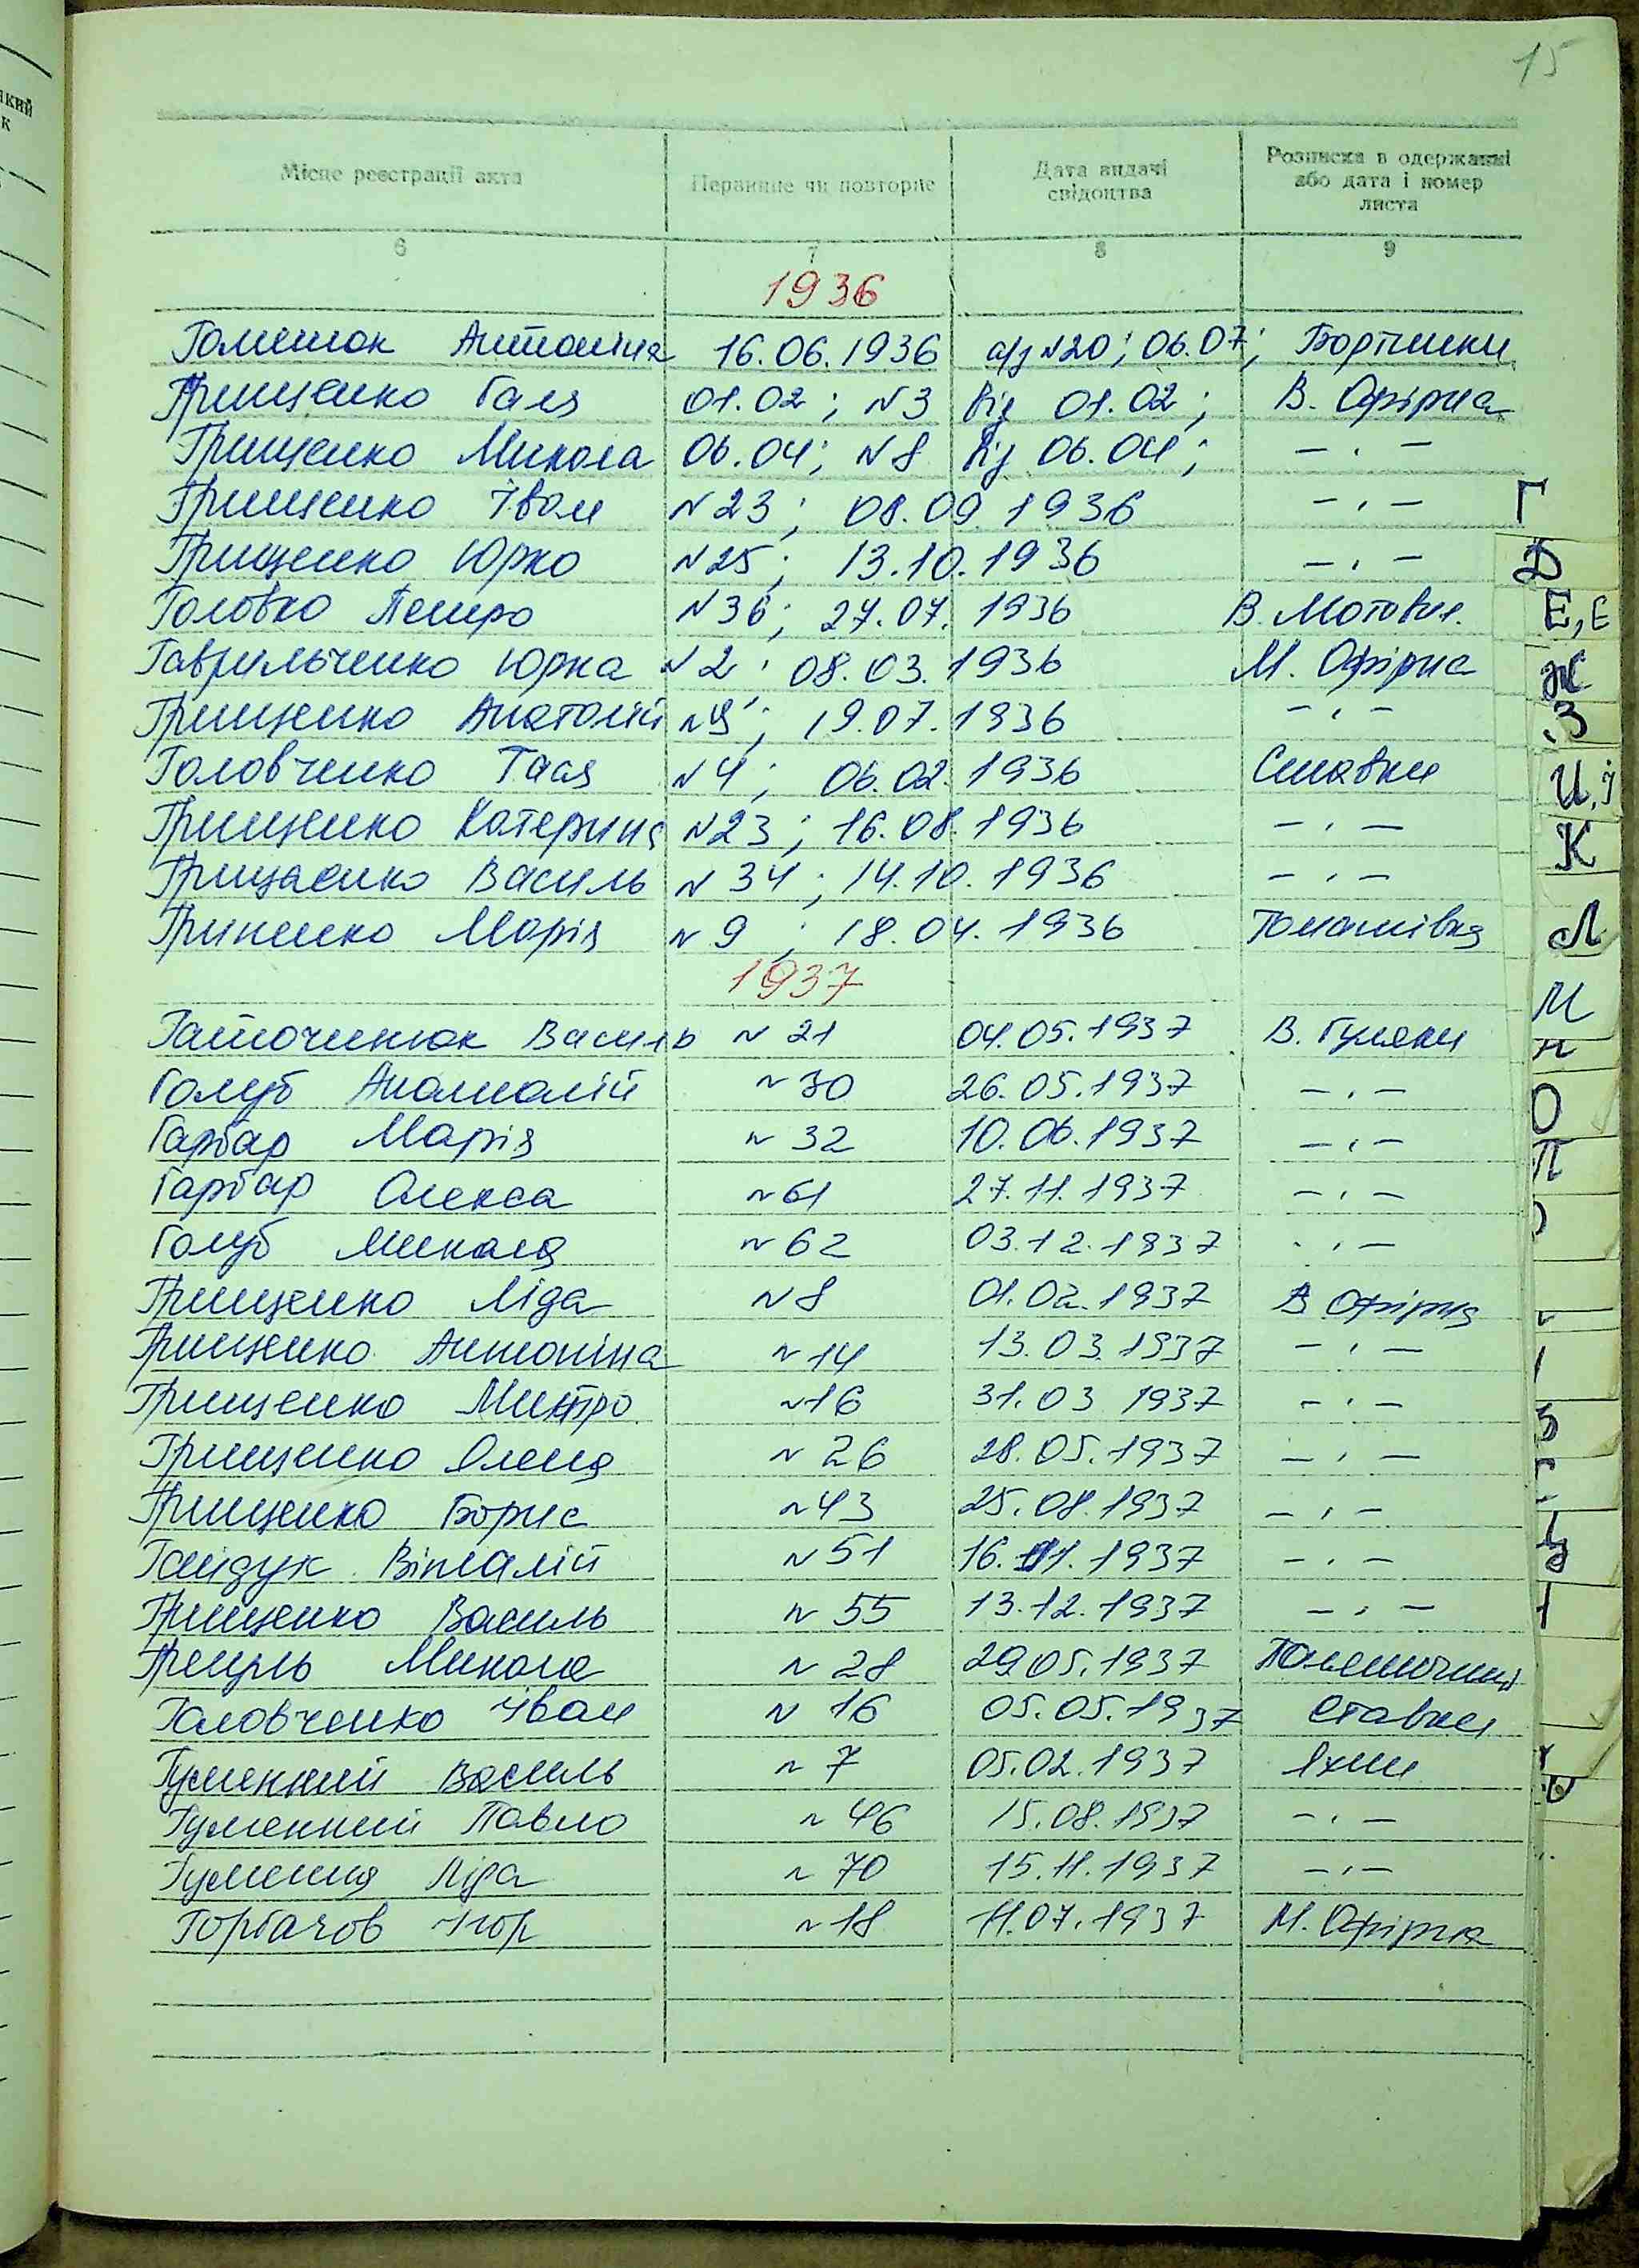 15
Місце реєстрації акта Первинне чи повторне Дата видачі свідоцтва Розписка в одержанні або дата і номер листа
6 7 8 9
1936
Антоніна 16.06.1936 а/з №20; 06.07; Бортники
Грищенко Галя 01.02; №3 від 01.02; В. Офірна
Грищенко Микола 06.04; №8 від 06.04; — " —
Грищенко Іван №23; 08.09.1936 — " —
Грищенко Юрко №25; 13.10.1936 — " —
Головко Петро №36; 27.07.1936 В. Мотовил.
Гаврильченко Юрка №2; 08.03.1936 М. Офірна
Грищенко Анатолій 19.07.1936 — " —
Головченко Тася №4; 06.02.1936 Ставки
Грищенко Катерина №23; 16.08.1936 — " —
Грищенко Василь №34; 14.10.1936 — " —
Гриненко Марія №9; 18.04.1936 Томашівка
1937
Василь №21 04.05.1937 В. Гуляки
Голуб Анатолій №30 26.05.1937 — " —
Гарбар Марія №32 10.06.1937 — " —
Гарбар Олекса №61 27.11.1937 — " —
Голуб Микола №62 03.12.1937 — " —
Грищенко Ліда №8 01.02.1937 В Офірна
Грищенко Антоніна №14 13.03.1937 — " —
Грищенко Митро №16 31.03 1937 — " —
Грищенко Олена №26 28.05.1937 — " —
Грищенко Борис №43 25.08.1937 — " —
Гайдук Віталій №51 16.11.1937 — " —
Грищенко Василь №55 13.12.1937 — " —
Микола №28 29.05.1937
Головченко Іван №16 05.05.1937 Ставки
Гуменний Василь №7 05.02.1937 Яхни
Гуменний Павло №46 15.08.1937 — " —
Гуменна Ліда №70 15.11.1937 — " —
Горбачов Ігор №18 11.07.1937 М. Офірна
Г
Д
Е, Є
Ж
З
И, І
К
Л
М
Н
О
П